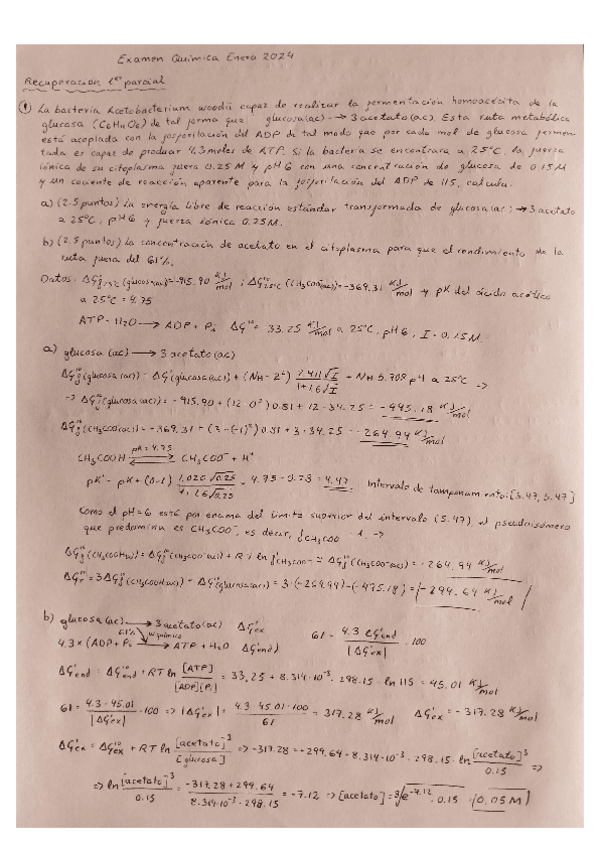 Examen Química Enero 2024
Recuperación 1er parcial
① La bacteria Acetobacterium woodii capaz de realizar la fermentación homoacética de la
glucosa (C6H12O6) de tal forma que: glucosa(ac) → 3 acetato(ac). Esta ruta metabólica
está acoplada con la fosforilación del ADP de tal modo que por cada mol de glucosa fermen
tada es capaz de producir 4.3 moles de ATP. Si la bacteria se encontrara a 25°C, la fuerza
iónica de su citoplasma fuera 0.25 M y pH 6 con una concentración de glucosa de 0.15 M
y un cociente de reacción aparente para la fosforilación del ADP de 115, calcula:
a) (2.5 puntos) La energía libre de reacción estándar transformada de glucosa(ac) → 3 acetato
a 25°C, pH 6 y fuerza iónica 0.25M.
b) (2.5 puntos) La concentración de acetato en el citoplasma para que el rendimiento de la
ruta fuera del 61%.
Datos: (glucosa(ac)) = -915.90 KJ/mol ; (CH3COO-(ac)) = -369.31 KJ/mol y pK del ácido acético
a 25°C = 4.75
ATP + H2O → ADP + Pi 33.25 KJ/mol a 25°C, pH 6, I = 0.15M
a) glucosa (ac) → 3 acetato(ac)
a 25°C =>
-> ΔGf'°(glucosa(ac)) = -915.90 + (12 - 0²) 0.81 + 12 · 34.25 = -495.18 KJ/mol
ΔGf'°(CH3COO(ac)) = -369.31 + (3-(-1)²) 0.81 + 3 · 34.25 = -264.94 KJ/mol
CH3COOH ⇌ CH3COO- + H+ pK = 4.75
= 4.75 - 0.28 = 4.47 Intervalo de tamponamiento: [3.47, 5.47]
Como el pH=6 está por encima del límite superior del intervalo (5.47), el pseudoisómero
que predomina es CH3COO-, es decir,
-264.94 KJ/mol
= -299.64 KJ/mol
b) glucosa(ac) → 3 acetato(ac) ΔG'ex
61% W químico
4.3 × (ADP + Pi → ATP + H2O ΔG'end)
61 = 4.3 ΔG'end / |ΔG'ex| · 100
ΔG'end = ΔG'°end + RT ln [ATP]/[ADP][Pi] = 33.25 + 8.314·10⁻³ · 298.15 · ln 115 = 45.01 KJ/mol
61 = 4.3 · 45.01 / |ΔG'ex| · 100 => |ΔG'ex| = 4.3 · 45.01 · 100 / 61 = 317.28 KJ/mol ΔG'ex = -317.28 KJ/mol
ΔG'ex = ΔG'°ex + RT ln [acetato]³/[glucosa] => -317.28 = -299.64 + 8.314·10⁻³ · 298.15 · ln [acetato]³/0.15 =>
=> ln [acetato]³/0.15 = -317.28 + 299.64 / 8.314·10⁻³ · 298.15 = -7.12 -> [acetato] = ∛(e^-7.12 · 0.15) = 0.05 M